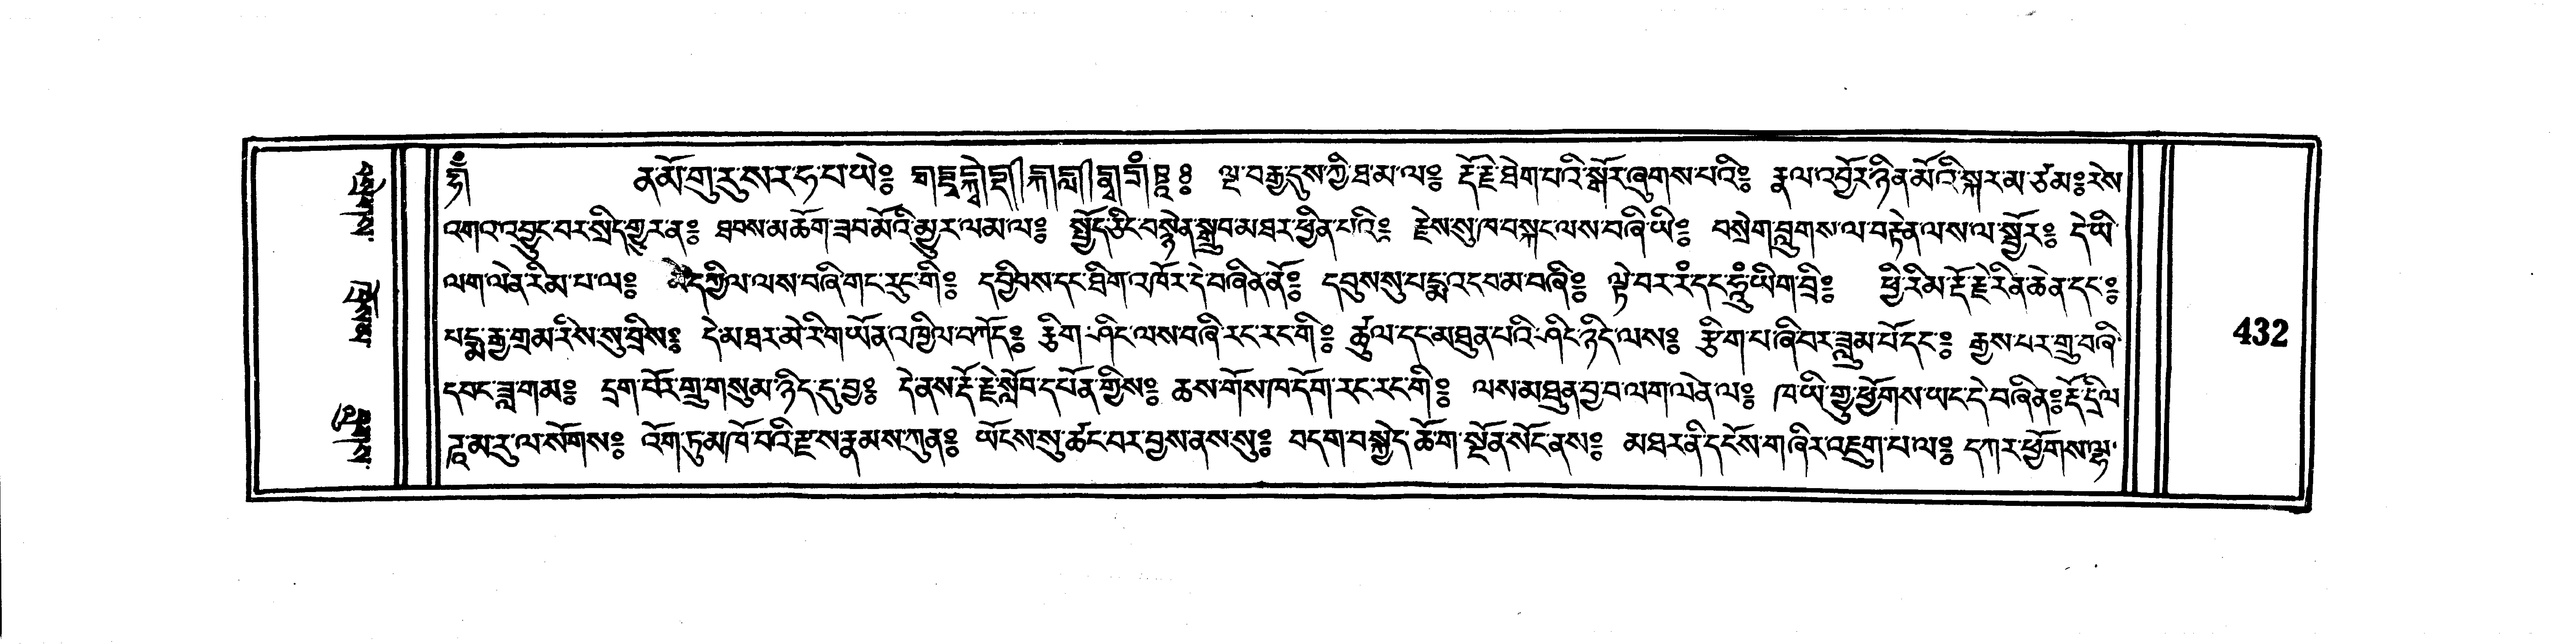 ན་མོ་གུ་རུ་ས་ར་ཧ་པ་ཡེ༔ ལྔ་བརྒྱ་དུས་ཀྱི་ཐ་མ་ལ༔ རྡོ་རྗེ་ཐེག་པའི་སྒོར་ཞུགས་པའི༔ རྣལ་འབྱོར་ཉིན་མོའི་སྐར་མ་ཙམ༔ རེས་
འགའ་འབྱུང་བར་སྲིད་གྱུར་ན༔ ཐབས་མཆོག་ཟབ་མོའི་མྱུར་ལམ་ལ༔ སྤྱོད་ཅིང་བསྙེན་སྒྲུབ་མཐར་ཕྱིན་པའི༔ རྗེས་སུ་ཁ་བསྐང་ལས་བཞི་ཡི༔ བསྲེག་བླུགས་ལ་བརྟེན་ལས་ལ་སྦྱོར༔ དེ་ཡི་
ལག་ལེན་རིམ་པ་ལ༔ མེ་དཀྱིལ་ལས་བཞི་གང་རུང་གི༔ དབྱིབས་དང་ཐིག་འཁོར་དེ་བཞིན་ནོ༔ དབུས་སུ་པདྨ་འདབ་མ་བཞི༔ ལྟེ་བར་རཾ་དང་ཧཱུྃ་ཡིག་བྲི༔ ཕྱི་རིམ་རྡོ་རྗེ་རིན་ཆེན་དང༔
པདྨ་རྒྱ་གྲམ་རིས་སུ་བྲིས༔ དེ་མཐར་མེ་རི་གཡོན་འཁྱིལ་བཀོད༔ རྩིག་ཤིང་ལས་བཞི་རང་རང་གི༔ ཚུལ་དང་མཐུན་པའི་ཤིང་ཉིད་ལས༔ རྩིག་པ་ཞི་བར་ཟླུམ་པོ་དང༔ རྒྱས་པར་གྲུ་བཞི་
དབང་ཟླ་གམ༔ དྲག་པོར་གྲུ་གསུམ་ཉིད་དུ་བྱ༔ དེ་ནས་རྡོ་རྗེ་སློབ་དཔོན་གྱིས༔ ཆས་གོས་ཁ་དོག་རང་རང་གི༔ ལས་མཐུན་བྱ་བ་ལག་ལེན་ལ༔ ཁ་ཡི་གྱུ་ཕྱོགས་ཡང་དེ་བཞིན༔ རྡོ་དྲིལ་
ཌ་མ་རུ་ལ་སོགས༔ འོག་ཏུམ་ཁོ་བའི་རྫས་རྣམས་ཀུན༔ ཡོངས་སུ་ཚང་བར་བྱས་ནས་སུ༔ བདག་བསྐྱེད་ཆོག་སྔོན་སོང་ནས༔ མཐར་ནི་དངོས་གཞིར་འཇུག་པ་ལ༔ དཀར་ཕྱོགས་ལྷ་
432